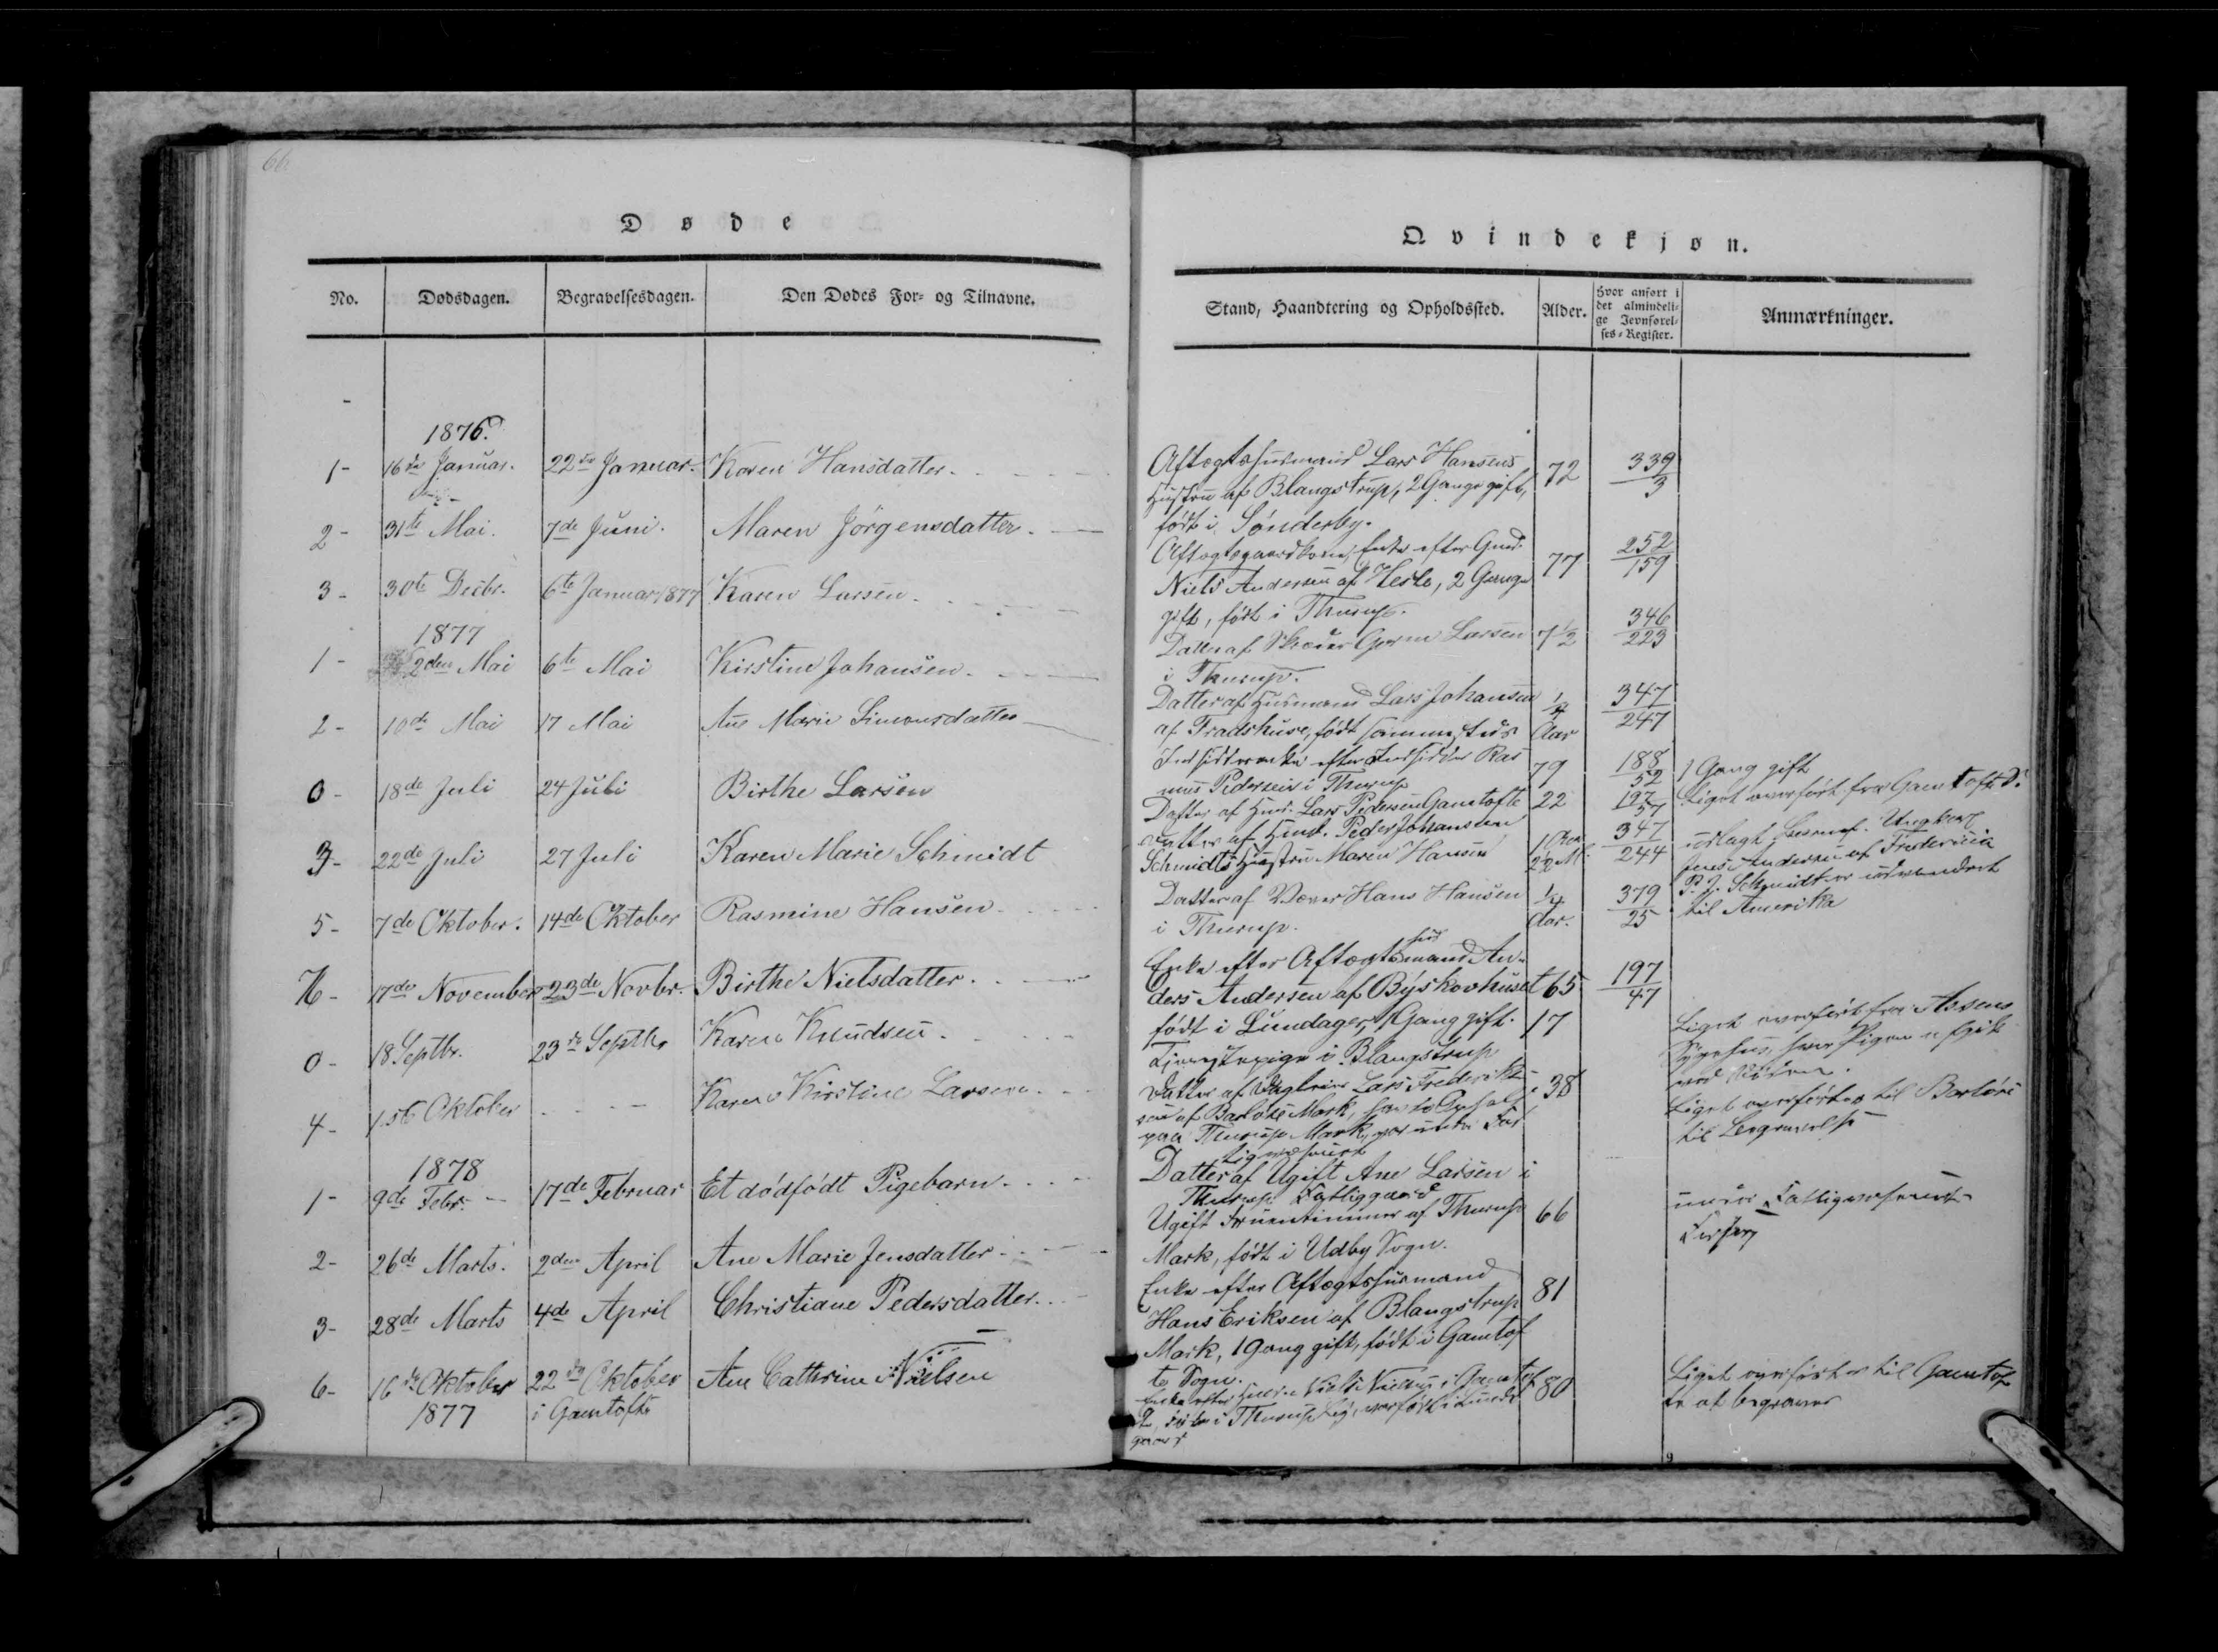 66
Døde
Qvindekjøn.
No.
Dødsdagen.
Begravelsesdagen.
Den Dødes For- og Tilnavne.
Stand, Haandtering og Opholdssted.
Alder.
Hvor anført i
det almindeli-
ge Jevnførel-
ses-Register.
Anmærkninger.
1876.
1- 16de Januar. 22de Januar. Karen Hansdatter.
Aftægtshusmand Lars Hansens
Hustru af Blangstrup, 2 Gange gift,
født i Sønderby.
72
339
3
2- 31te Mai. 7de Juni. Maren Jörgensdatter.
Aftægtsgaardkone, Enke efter Gmd.
Niels Andersen af Hesle, 2 Gange
gift, født i Thurup.
77
252
159
3- 30te Decbr. 6te Januar 1877 Karen Larsen.
Datter af Skræder Larsen
i Thurup.
7½
346
223
1877
1- 2den Mai 6te Mai Kirstine Johansen.
Datter af Husmand Lars Johansen
af Fradshuse, født sammesteds
¼
Aar
347
247
2- 10de Mai 17 Mai Ane Marie Simonsdatter
Indsidderenke efter Indsidder Ras
mus Pedersen i Thurup
79
188
52
1 Gang gift
0- 18de Juli 24 Juli Birthe Larsen
Datter af Hmd. Lars Pedersen Gamtofte
22
197
57
Liget overført fra Gamtofte
3- 22de Juli 27 Juli Karen Marie Schmidt
Datter af Hmd. Peder Johansen
Schmidts Hustru Maren Hansen
1 Aar
2½ M.
347
244
udlagt Ungkarl
Jens Andersen af Fredericia
P. J. Schmidt er udvandret
til Amerika
5- 7de Oktober. 14de Oktober Rasmine Hansen.
Datter af Væver Hans Hansen
i Thurup.
¼
Aar.
379
25
17de November 23de Novbr. Birthe Nielsdatter.
Enke efter Aftægtshusmand An-
ders Andersen af Byskovhuset
født i Lundager, 1 Gang gift.
65
197
47
0- 18 Septbr. 23de Septbr Karen Knudsen.
Tjenestepige i Blangstrup
17
Liget overført fra Assens
Sygehus, hvor Pigen
ved Døden.
4- 1ste Oktober Karen Kirstine Larsen.
Datter af Lars Frederik-
sen af Barløse Mark,
paa Thurup Mark, under Fat
tigvæsenet
38
Liget overførtes til Barløse
til Begravelse
1878
1- 9de Febr. 17de Februar Et dødfødt Pigebarn.
Datter af Ugift Ane Larsen i
Thurup Fattiggaard
under Fattigvæsenets
2- 26de Marts. 2den April Ane Marie Jensdatter
Ugift Fruentimmer af Thurup
Mark, født i Udby Sogn.
66
3- 28de Marts 4de April Christiane Pedersdatter.
Enke efter Aftægtshusmand
Hans Eriksen af Blangstrup
Mark, 1 Gang gift, født i Gamtof
te Sogn.
81
6- 16de Oktober 22de Oktober Ane Cathrine Nielsen
1877 i Gamtofte
Enke efter Niels Nielsen i Gamtof
te, i Thurup
80
Liget overførtes til Gamtof
te at begraves
9